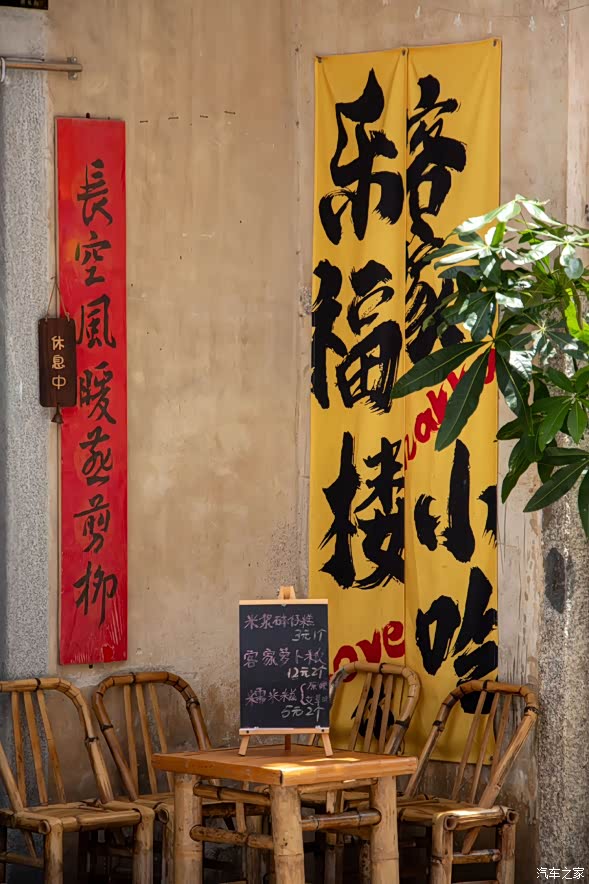 長空風暖燕剪柳
休息中
客家小吃
乐福楼
akk
ove
米浆砵仔糕
3元1个
客家萝卜粄
12元2个
糯米糍
5元2个
汽车之家